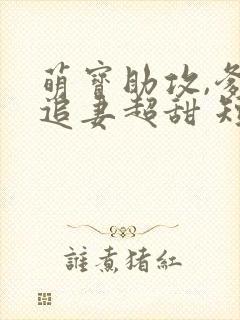 萌寶助攻,
追妻超甜
誰煮猪紅